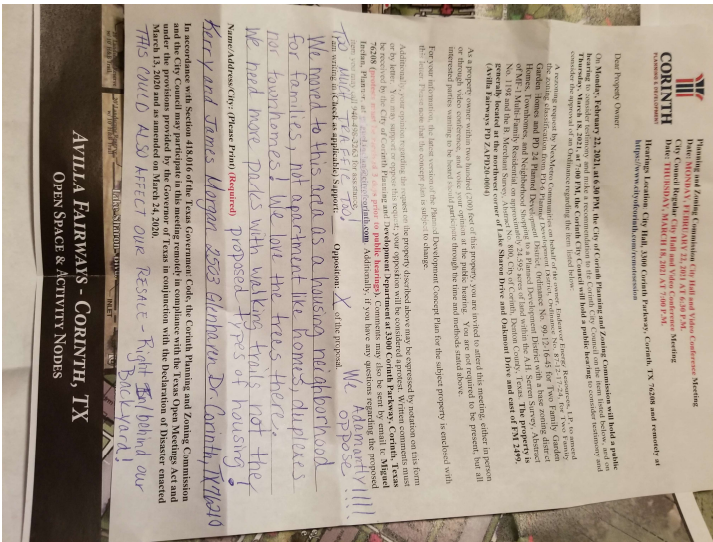 CORINTH
PLANNING & DEVELOPMENT
Planning and Zoning Commission City Hall and Video Conference Meeting
Date: MONDAY, FEBRUARY 22, 2021 AT 6:30 P.M.
City Council Regular City Hall and Video Conference Meeting
Date: THURSDAY, MARCH 18, 2021 AT 7:00 P.M.
Hearings Location: City Hall, 3300 Corinth Parkway, Corinth, TX 76208 and remotely at
https://www.cityofcorinth.com/remotesession
Dear Property Owner:
On Monday, February 22, 2021, at 6:30 PM, the City of Corinth Planning and Zoning Commission will hold a public
hearing to consider testimony and make a recommendation to the Corinth City Council on the item listed below, and on
Thursday, March 18, 2021, at 7:00 PM, the Corinth City Council will hold a public hearing to consider testimony and
consider the approval of an Ordinance regarding the item listed below.
A rezoning request by NexMetro Communities on behalf of the owner, Endeavor Energy Resources, LP, to amend
the zoning classification from PD-6 Planned Development District, Ordinance No. 87-12-17-24, for Two Family
Garden Homes and PD 24 Planned Development District, Ordinance No. 99-12-16-45 for Two Family Garden
Homes, Townhomes, and Neighborhood Shopping to a Planned Development District with a base zoning district
of MF-1 Multi-Family Residential on approximately 24.595 acres of land within the A.H. Serren Survey, Abstract
No. 1198 and the B. Merchant Survey, Abstract No. 800, City of Corinth, Denton County, Texas. The property is
generally located at the northwest corner of Lake Sharon Drive and Oakmont Drive and east of FM 2499.
(Avilla Fairways PD ZAPD20-0004)
As a property owner within two hundred (200) feet of this property, you are invited to attend this meeting, either in person
or through video conference, and voice your opinion at the public hearing. You are not required to be present, but all
interested parties wanting to be heard may participate through the time and methods stated above.
For your information, the latest version of the Planned Development Concept Plan for the subject property is enclosed with
this letter. Please note that the concept plan is subject to change.
Additionally, your opinion regarding the request on the property described above may be expressed by notation on this form
or by letter. If you are in opposition to this request, your opposition will be considered a protest. Written comments must
be received by the City of Corinth Planning and Development Department at 3300 Corinth Parkway, Corinth, Texas
76208 prior to public hearings). Comments may also be sent by email to Miguel
Inclan, Planner, at corinth.com Additionally, if you have any questions regarding the proposed
for assistance.
I am writing in (Check as applicable) Support: Opposition: X of the proposal.
TOO MUCH TRAFFIC TOO! We Adamantly!!!! oppose!!!!
We moved to this area as a housing neighborhood
for families, not apartment like homes, duplexes
nor townhomes! We love the trees there.
We need more parks with walking trails, not the
proposed types of housing!
Name/Address/City: (Please Print) (Required)
Kerry and James Morgan 2503 Glenhaven Dr. Corinth, TX 76210
In accordance with Section 418.016 of the Texas Government Code, the Corinth Planning and Zoning Commission
and the City Council may participate in this meeting remotely in compliance with the Texas Open Meetings Act and
under the provisions provided by the Governor of Texas in conjunction with the Declaration of Disaster enacted
March 13, 2020 and as amended on March 24, 2020.
THIS COULD ALSO AFFECT OUR RESALE - Right behind our
Backyard!
AVILLA FAIRWAYS - CORINTH, TX
OPEN SPACE & ACTIVITY NODES